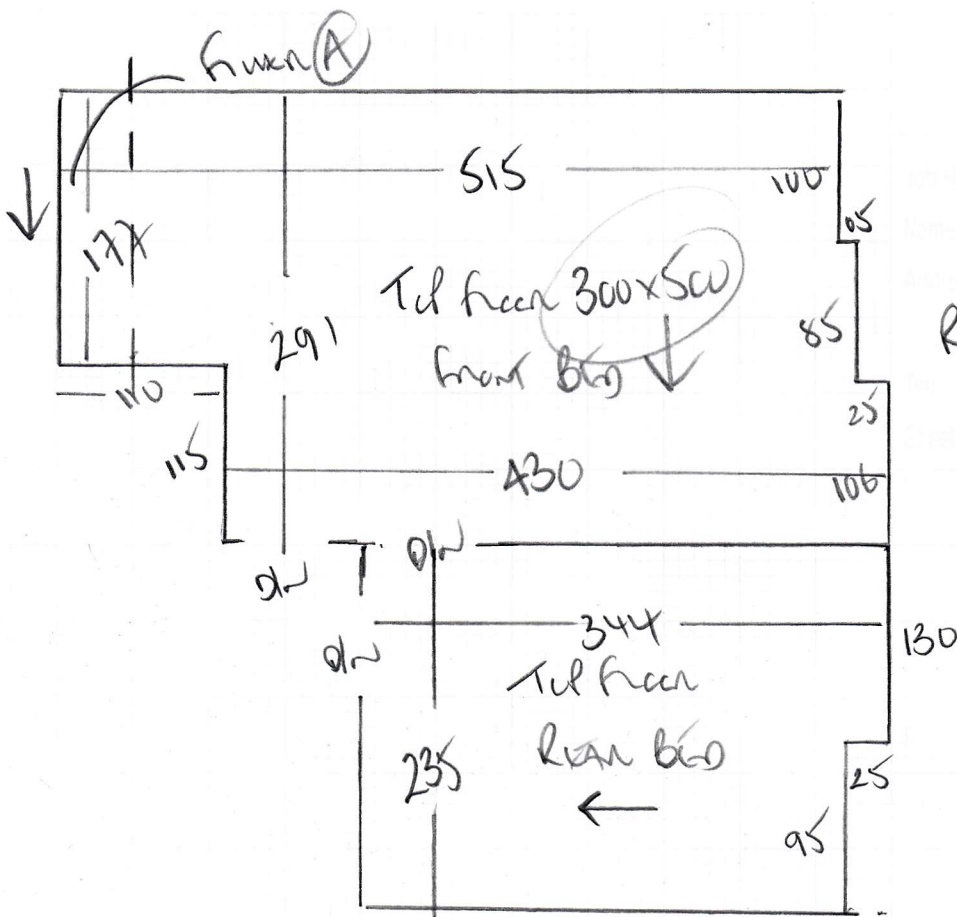 A
515
100
05
177
Top Floor 300x500
Front Bed
291
85
R
110
25
115
430
106
D/W
D/W
D/W
344
130
Top Floor
Rear Bed
235
25
95